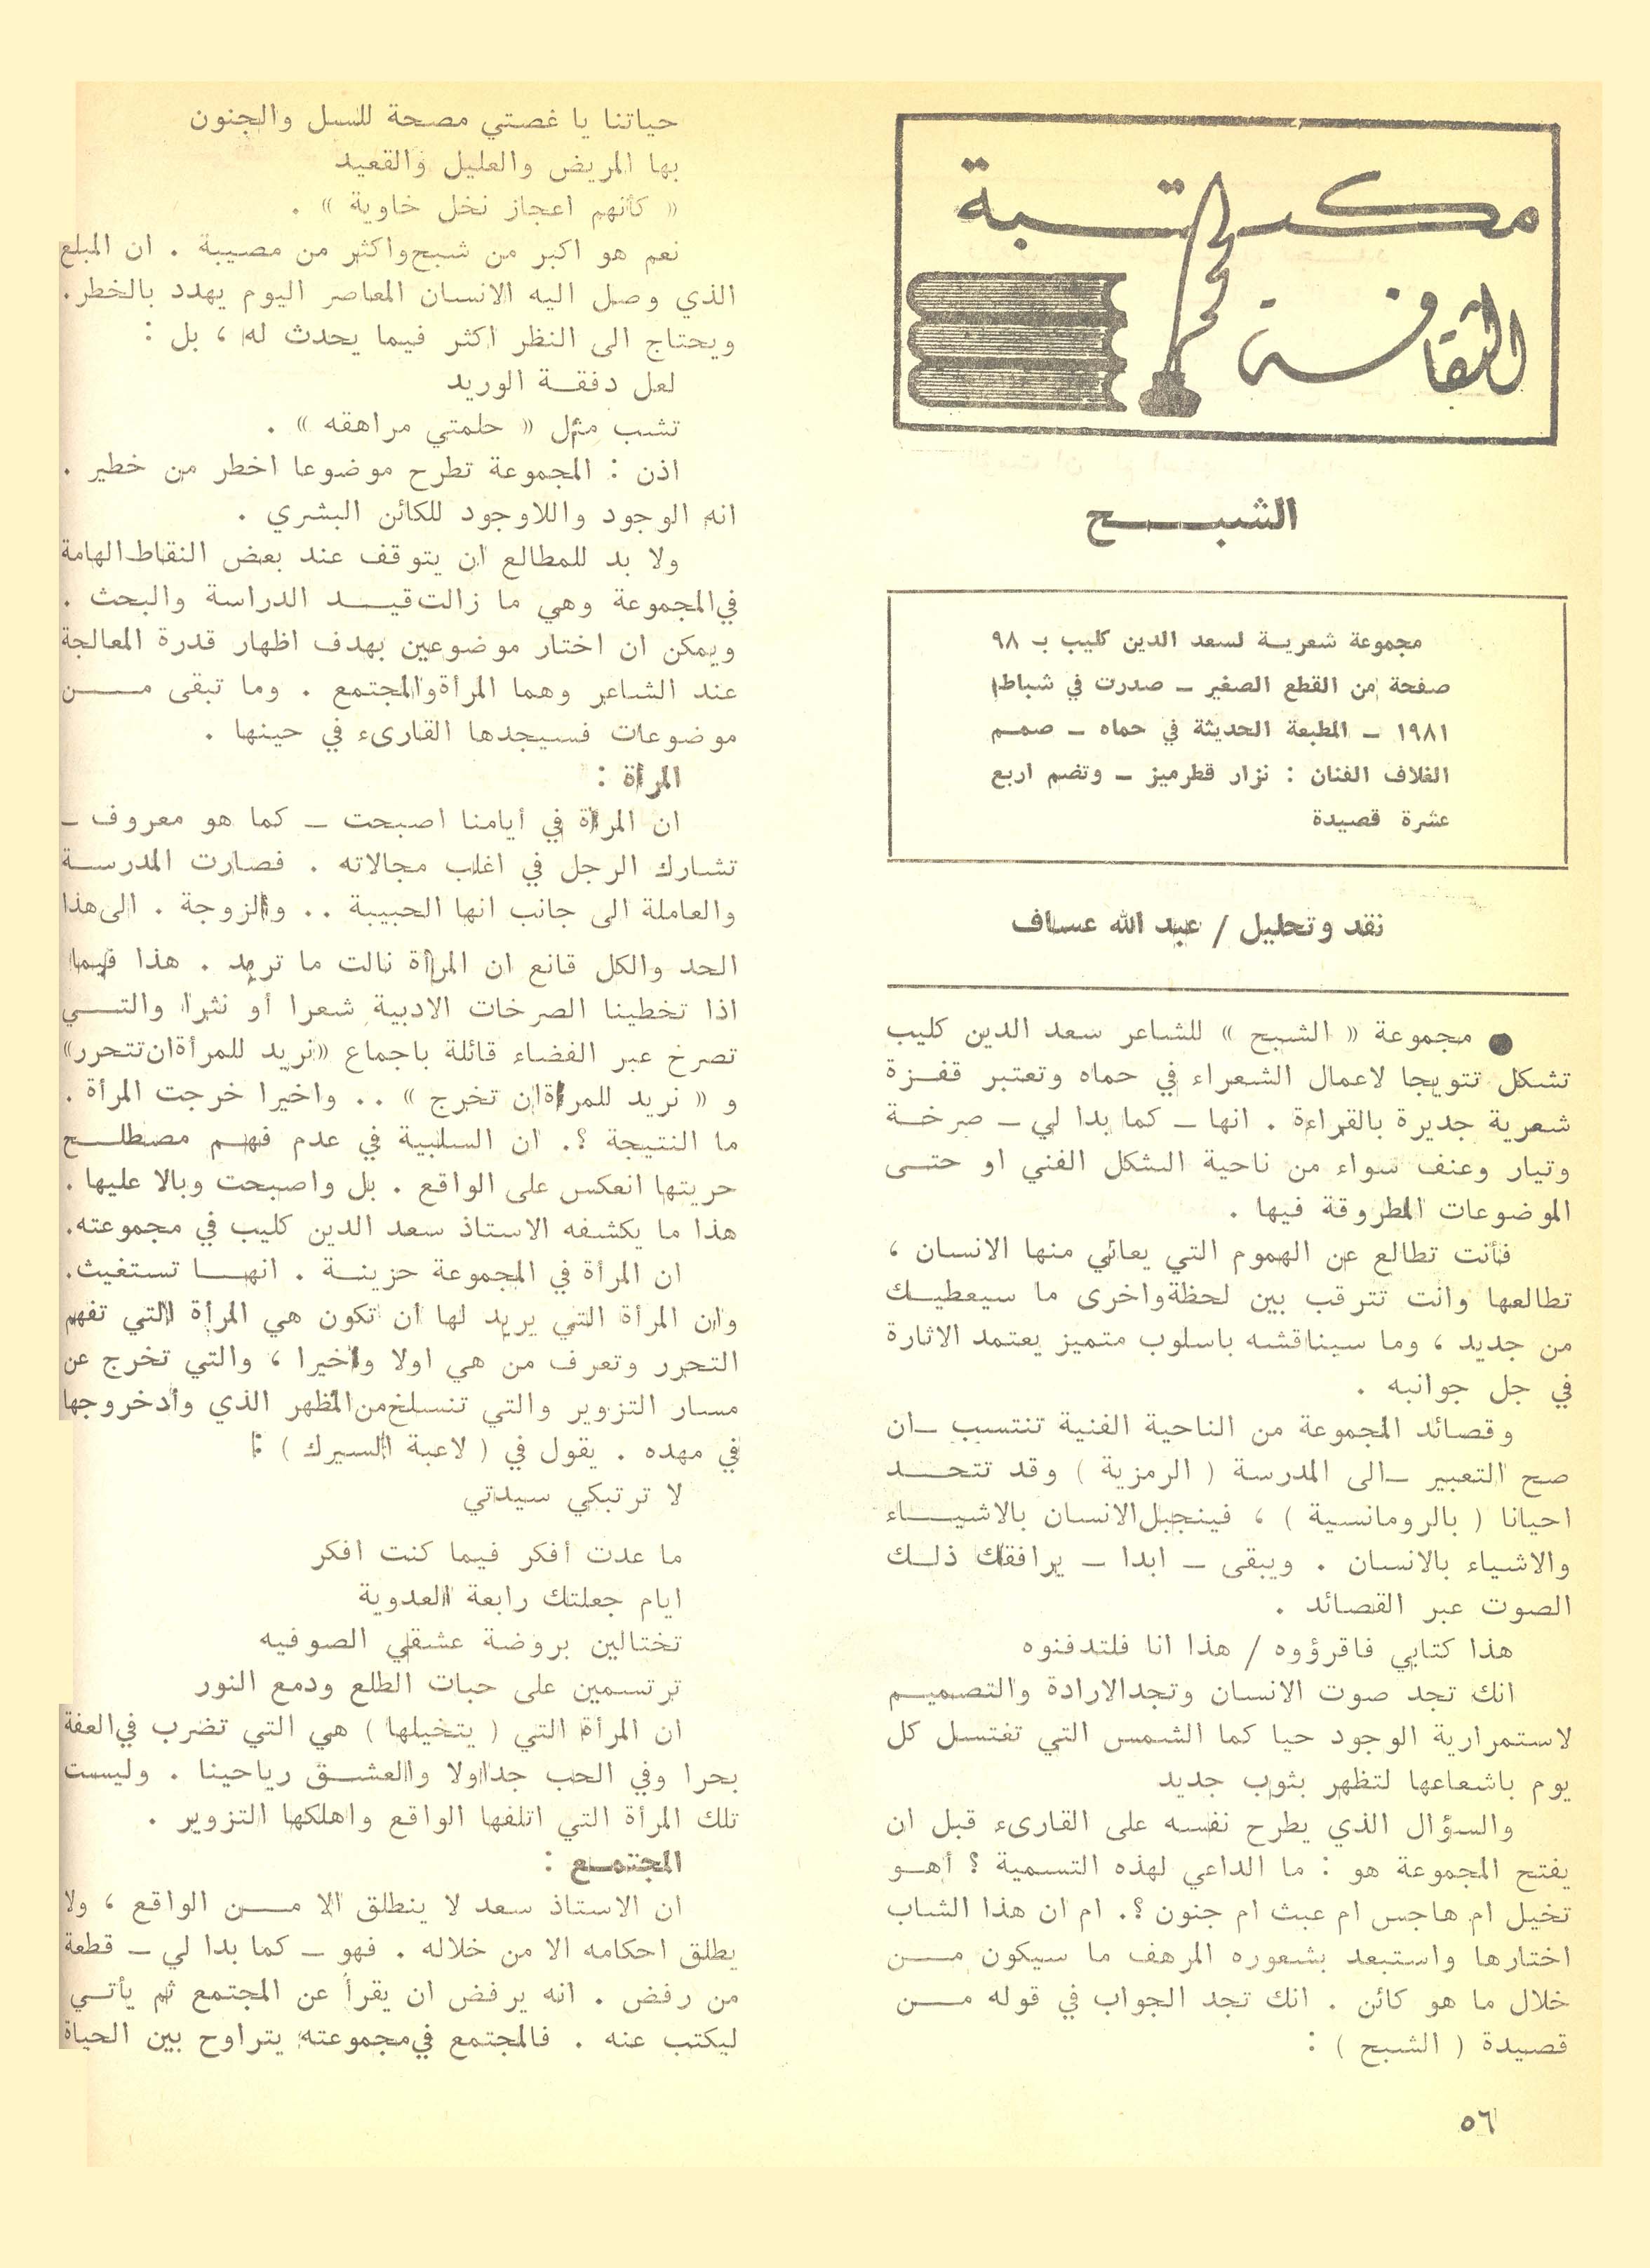 مكتبة
الثقافة
الشبح
مجموعة شعرية لسعد الدين كليب بـ ٩٨
صفحة من القطع الصغير ـ صدرت في شباط
١٩٨١ ـ المطبعة الحديثة في حماه ـ صمم
الغلاف الفنان : نزار قطرميز ـ وتضم اربع
عشرة قصيدة
نقد وتحليل / عبد الله عساف
● مجموعة « الشبح » للشاعر سعد الدين كليب
تشكل تتويجا لاعمال الشعراء في حماه وتعتبر قفزة
شعرية جديرة بالقراءة . انها ـ كما بدا لي ـ صرخة
وتيار وعنف سواء من ناحية الشكل الفني او حتى
الموضوعات المطروقة فيها .
فأنت تطالع عن الهموم التي يعاني منها الانسان ،
تطالعها وانت تترقب بين لحظة واخرى ما سيعطيك
من جديد ، وما سيناقشه باسلوب متميز يعتمد الاثارة
في جل جوانبه .
وقصائد المجموعة من الناحية الفنية تنتسب ـ ان
صح التعبير ـ الى المدرسة ( الرمزية ) وقد تتحد
احيانا ( بالرومانسية ) ، فينجبل الانسان بالاشياء
والاشياء بالانسان . ويبقى ـ ابدا ـ يرافقك ذلك
الصوت عبر القصائد .
هذا كتابي فاقرؤوه / هذا انا فلتدفنوه
انك تجد صوت الانسان وتجد الارادة والتصميم
لاستمرارية الوجود حيا كما الشمس التي تغتسل كل
يوم باشعاعها لتظهر بثوب جديد
والسؤال الذي يطرح نفسه على القارىء قبل ان
يفتح المجموعة هو : ما الداعي لهذه التسمية ؟ أهو
تخيل ام هاجس ام عبث ام جنون ؟. ام ان هذا الشاب
اختارها واستبعد بشعوره المرهف ما سيكون من
خلال ما هو كائن . انك تجد الجواب في قوله من
قصيدة ( الشبح ) :
حياتنا يا غصتي مصحة للسل والجنون
بها المريض والعليل والقعيد
« كأنهم اعجاز نخل خاوية » .
نعم هو اكبر من شبح واكثر من مصيبة . ان المبلغ
الذي وصل اليه الانسان المعاصر اليوم يهدد بالخطر.
ويحتاج الى النظر اكثر فيما يحدث له ، بل :
لعل دفقة الوريد
تشب مثل « حلمتي مراهقه » .
اذن : المجموعة تطرح موضوعا اخطر من خطير .
انه الوجود واللاوجود للكائن البشري .
ولا بد للمطالع ان يتوقف عند بعض النقاط الهامة
في المجموعة وهي ما زالت قيد الدراسة والبحث .
ويمكن ان اختار موضوعين بهدف اظهار قدرة المعالجة
عند الشاعر وهما المرأة والمجتمع . وما تبقى من
موضوعات فسيجدها القارىء في حينها .
المرأة :
ان المرأة في أيامنا اصبحت ـ كما هو معروف ـ
تشارك الرجل في اغلب مجالاته . فصارت المدرسة
والعاملة الى جانب انها الحبيبة .. والزوجة . الى هذا
الحد والكل قانع ان المرأة نالت ما تريد . هذا فيما
اذا تخطينا الصرخات الادبية شعرا أو نثرا والتي
تصرخ عبر الفضاء قائلة باجماع «نريد للمرأة ان تتحرر»
و « نريد للمرأة ان تخرج » .. واخيرا خرجت المرأة .
ما النتيجة ؟. ان السلبية في عدم فهم مصطلح
حريتها انعكس على الواقع . بل واصبحت وبالا عليها .
هذا ما يكشفه الاستاذ سعد الدين كليب في مجموعته.
ان المرأة في المجموعة حزينة . انها تستغيث.
وان المرأة التي يريد لها ان تكون هي المرأة التي تفهم
التحرر وتعرف من هي اولا واخيرا ، والتي تخرج عن
مسار التزوير والتي تنسلخ من المظهر الذي وأد خروجها
في مهده . يقول في ( لاعبة السيرك ) :
لا ترتبكي سيدتي
ما عدت أفكر فيما كنت افكر
ايام جعلتك رابعة العدوية
تختالين بروضة عشقي الصوفيه
ترتسمين على حبات الطلع ودمع النور
ان المرأة التي ( يتخيلها ) هي التي تضرب في العفة
بحرا وفي الحب جداولا والعشق رياحينا . وليست
تلك المرأة التي اتلفها الواقع واهلكها التزوير .
المجتمع :
ان الاستاذ سعد لا ينطلق الا من الواقع ، ولا
يطلق احكامه الا من خلاله . فهو ـ كما بدا لي ـ قطعة
من رفض . انه يرفض ان يقرأ عن المجتمع ثم يأتي
ليكتب عنه . فالمجتمع في مجموعته يتراوح بين الحياة
٥٦